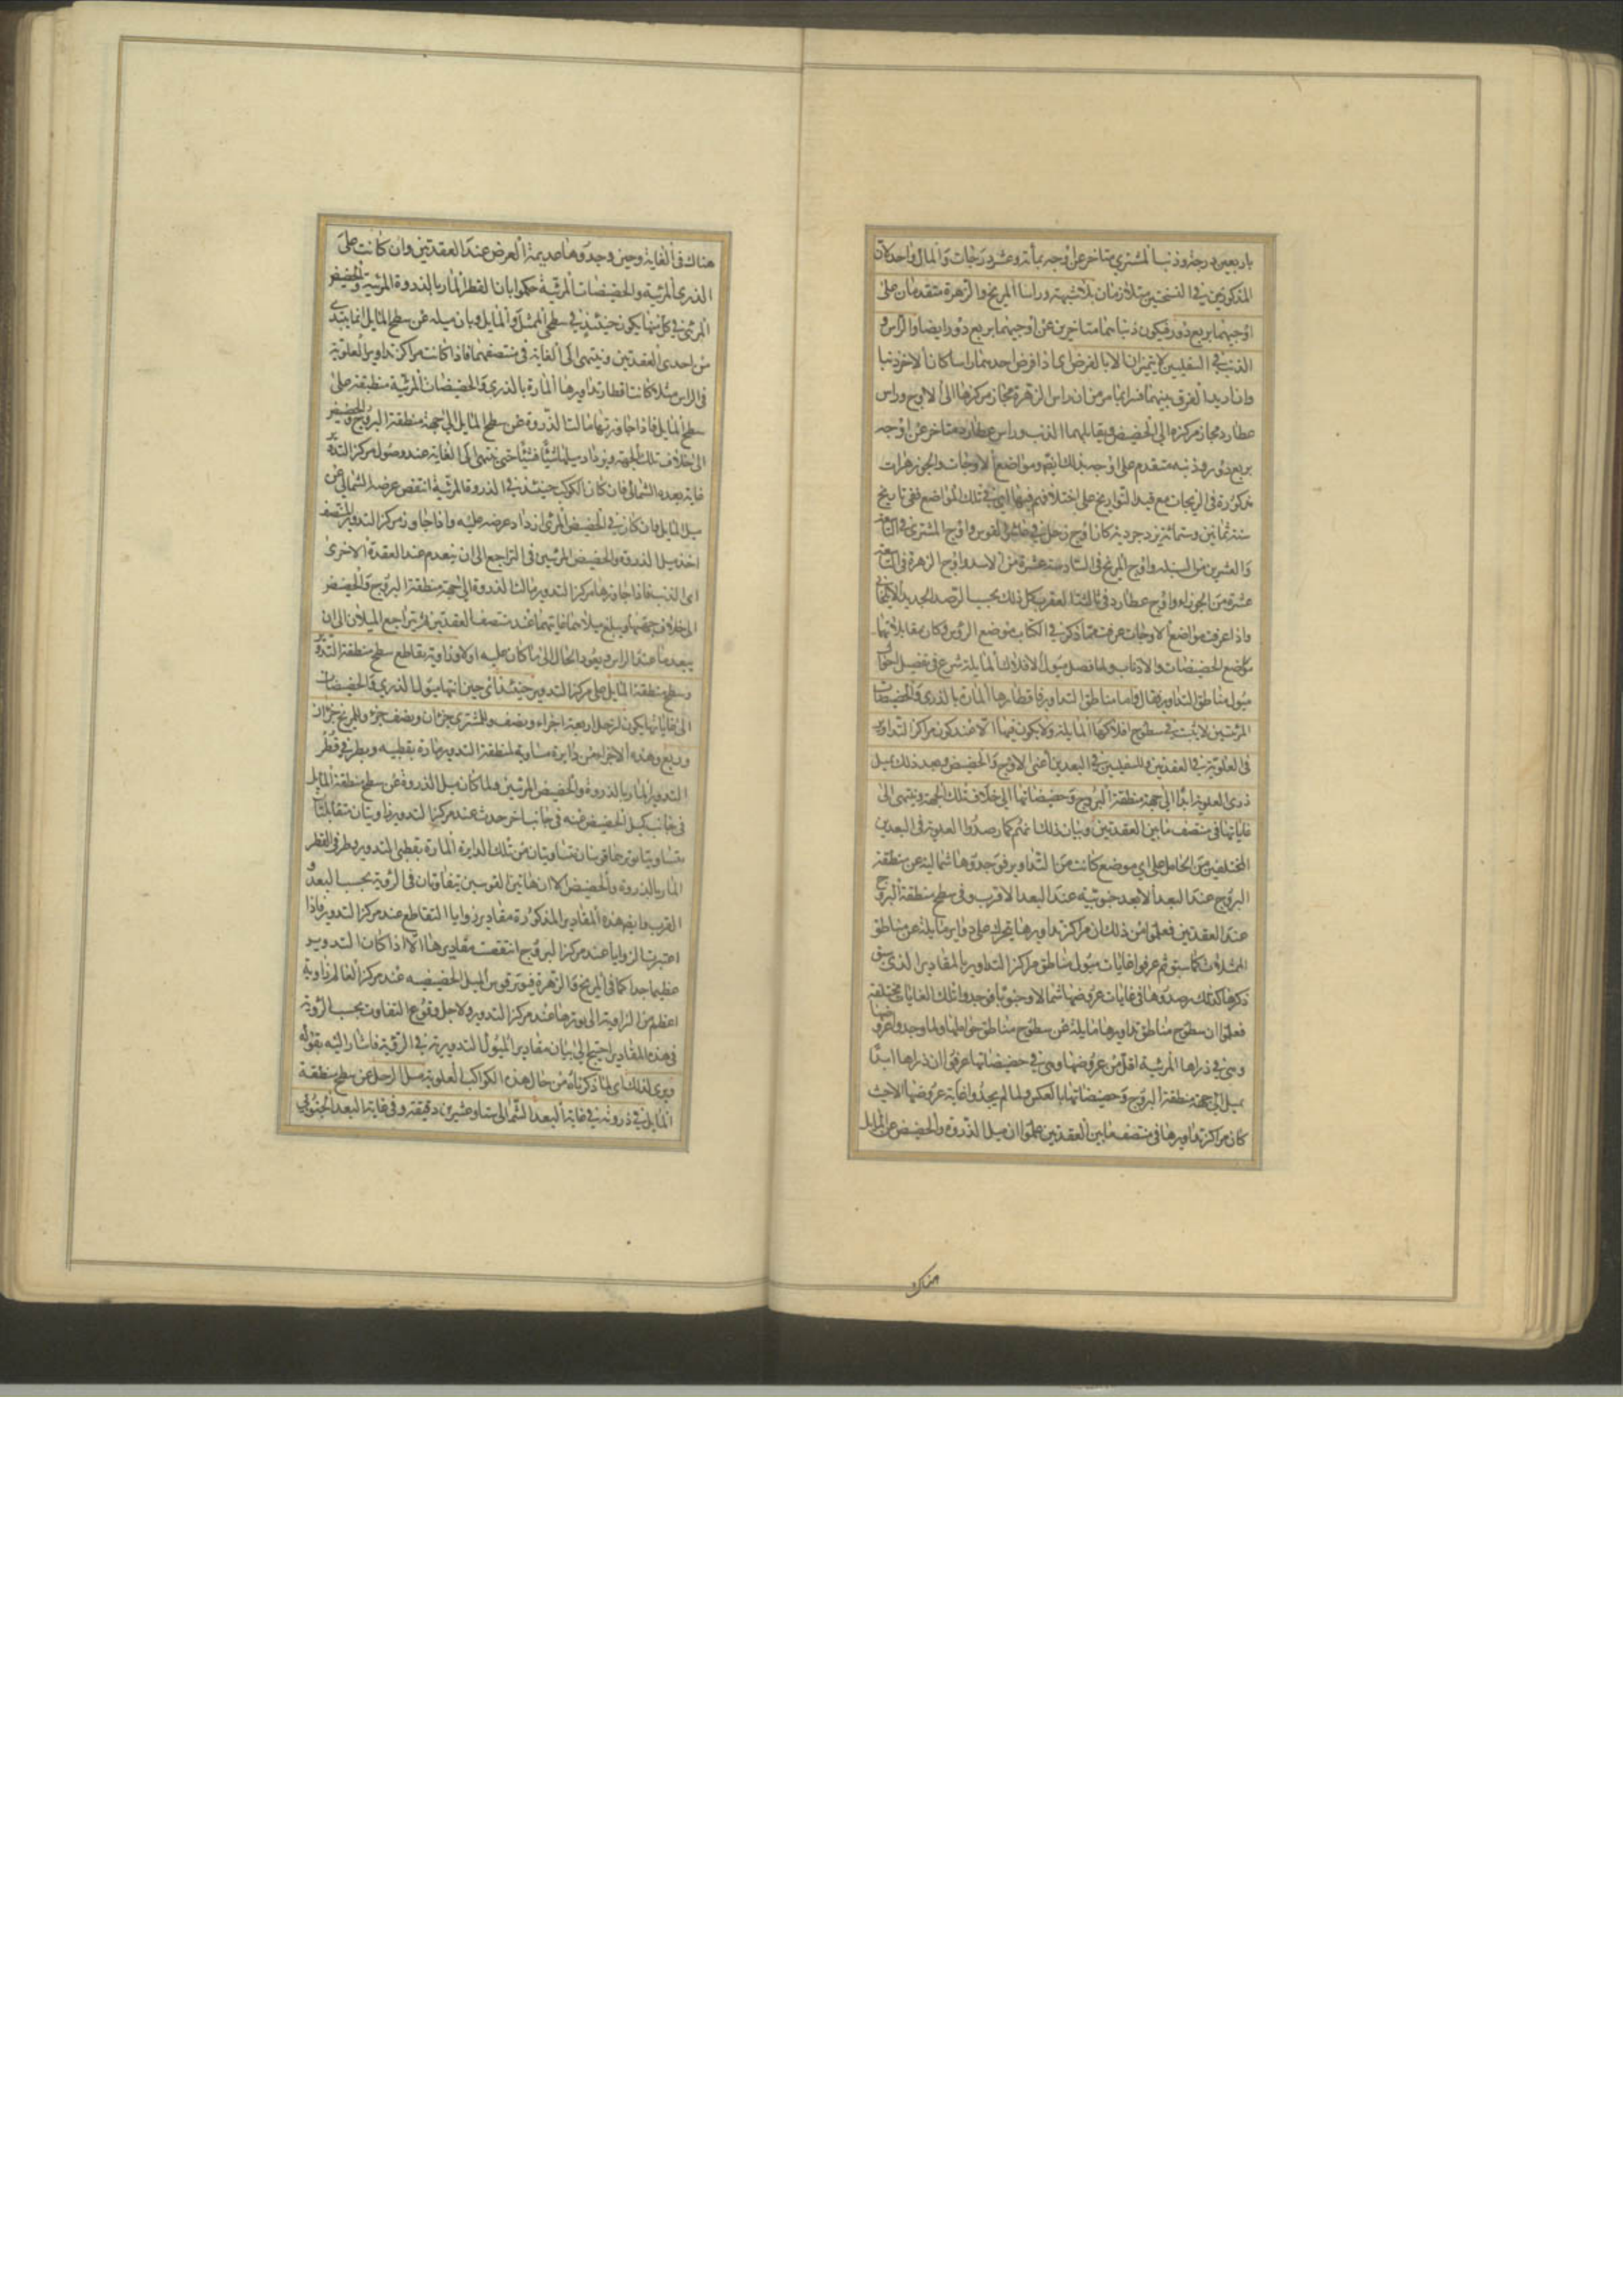 باربعين درجة وذنب المشتري متاخر عن اوجه بمأنة وعشر درجات والمال واحد كان
المذكورين في النسختين متلازمان بلا شبهة وراسا المريخ والزهرة متقدمان على
اوجيهما بربع دور فيكون ذنباهما متاخرين عن اوجيهما بربع دور ايضا والراس و
الذنب في السفليين لا يتميزان الا بالفرض اى اذا فرض احدهما راسا كان الاخر ذنبا
وان اريد الفرق بينهما فسرا بما مر من ان راس الزهرة مجاز مركزها الى الاوج وراس
عطارد مجاز مركزه الى الحضيض ويقابلهما الذنب وراس عطارد متاخر عن اوجه
بربع دور وذنبه متقدم على اوجه بذلك ايضا ومواضع الاوجات والجوزهرات
مذكورة في الزيجات مع قيد التواريخ على اختلاف فيها ففي تاريخ
سنة ثمانين وستمائة يزدجردية كان اوج زحل في القوس واوج المشتري في
والعشرين من السنبلة واوج المريخ في السادسة عشرة من الاسد واوج الزهرة في
عشرة من الجوزاء واوج عطارد في العقرب كل ذلك بحسب الرصد الجديد
واذا عرفت مواضع الاوجات عرفت مما ذكر في الكتاب موضع الرؤس وكان مقابلاتها
مواضع الحضيضات والاذناب ولما فصل ميول الافلاك المايلة شرع في تفصيل احوال
ميول مناطق التداوير فقال واما مناطق التداوير فاقطارها المارة بالذرى والحضيضات
المرئيين لا يثبت في سطوح افلاكها المايلة ولا يكون فيها الا عند كون مراكز التداوير
في العلوية في العقدتين وللسفليين في البعدين اعنى الاوج والحضيض وبعد ذلك يميل
ذرى العلوية ابدا الى جهة منطقة البروج وحضيضاتها الى خلاف تلك الجهة وينتهى الى
غاياتها في منتصف ما بين العقدتين وبيان ذلك انهم كما رصدوا العلوية في البعدين
المختلفين من الحامل على اى موضع كانت من التداوير فوجدوها شمالية عن منطقة
البروج عند البعد الابعد جنوبية عند البعد الاقرب وفي سطح منطقة البروج
عند العقدتين فعلموا من ذلك ان مراكز تداويرها يتحرك على دواير مايلة عن مناطق
الممثلات كما سبق ثم عرفوا غايات ميول مناطق مراكز التداوير بالمقادير الذى سبق
ذكرها كذلك رصدوها في غايات عروضها شمالا وجنوبا فوجدوا تلك الغايات مختلفة
فعلموا ان سطوح مناطق تداويرها مايلة عن سطوح مناطق حواملها ولما وجدوا عروضها
وهى في ذراها المرئية اقل من عروضها وهى في حضيضاتها عرفوا ان ذراها ابدا
يميل الى جهة منطقة البروج وحضيضاتها بالعكس ولما لم يجدوا غاية عروضها الا حيث
كان مراكز تداويرها في منتصف ما بين العقدتين علموا ان ميل الذروة والحضيض عن المايل
هناك
هناك في الغاية وحين وجدوها عديمة العرض عند العقدتين وان كانت على
الذرى المرئية والحضيضات المرئية حكموا بان القطر المار بالذروة المرئية والحضيض
المرئى في كل منها يكون حينئذ في سطحى الممثل والمايل وبان ميله عن سطح المايل انما يبتدى
من احدى العقدتين وينتهى الى الغاية في منتصفهما فاذا كانت مراكز تداوير العلوية
في الراس مثلا كانت اقطار تداويرها المارة بالذرى والحضيضات المرئية منطبقة على
سطح المايل فاذا جاوزتها مالت الذروة عن سطح المايل الى جهة منطقة البروج والحضيض
الى خلاف تلك الجهة ويزداد ميلها شيئا فشيئا حتى ينتهى الى الغاية عند وصول مركز التدوير
غاية بعده الشمالى فان كان الكوكب حينئذ في الذروة المرئية انتقص عرضه الشمالى عن
ميل المايل وان كان في الحضيض المرئى ازداد عرضه عليه واذا جاوز مركز التدوير المنتصف
اخذ ميل الذروة والحضيض المرئيين في التراجع الى ان ينعدم عند العقدة الاخرى
اى الذنب فاذا جاوزها مركز التدوير مالت الذروة الى جهة منطقة البروج والحضيض
الى خلاف جهتها ويبلغ ميلاهما غايتهما عند منتصف العقدتين ثم يتراجع الميلان الى ان
ينعدما عند الراس ويعود الحال الى ما كان عليه اولا وزاوية تقاطع سطح منطقة التدوير
وسطح منطقة المايل على مركز التدوير حينئذ اى حين انتهاء ميول الذرى والحضيضات
الى غاياتها يكون لزحل اربعة اجزاء ونصف وللمشترى جزءان ونصف جزء وللمريخ جزءان
وربع وهذه الاجزاء من دايرة مساوية لمنطقة التدوير مارة بقطبيه وبطرفى قطر
التدوير المار بالذروة والحضيض المرئيين ولما كان ميل الذروة عن سطح منطقة المايل
في جانب كميل الحضيض عنه في جانب اخر حدث عند مركز التدوير زاويتان متقابلتان
متساويتان يوترهما قوسان متساويتان من تلك الدايرة المارة بقطبى التدوير وطرفى القطر
المار بالذروة والحضيض الا ان هاتين القوسين يتفاوتان في الرؤية بحسب البعد و
القرب وايضا هذه المقادير المذكورة مقادير زوايا التقاطع عند مركز التدوير فاذا
اعتبرت الزوايا عند مركز البروج انتقصت مقاديرها الا اذا كان التدوير
عظيما جدا كما في المريخ والزهرة فيوتر قوس الميل الحضيضيه عند مركز العالم زاوية
اعظم من الزاوية التى يوترها عند مركز التدوير ولاجل وقوع التفاوت بحسب الرؤية
في هذه المقادير احتيج الى بيان مقادير الميول التدويرية في الرؤية فاشار اليه بقوله
ويرى لذلك اى لما ذكرناه من حال هذه الكواكب العلوية ميل الزحل عن سطح منطقة
المايل في ذروته في غاية البعد الشمالى ستا وعشرين دقيقة وفي غاية البعد الجنوبى